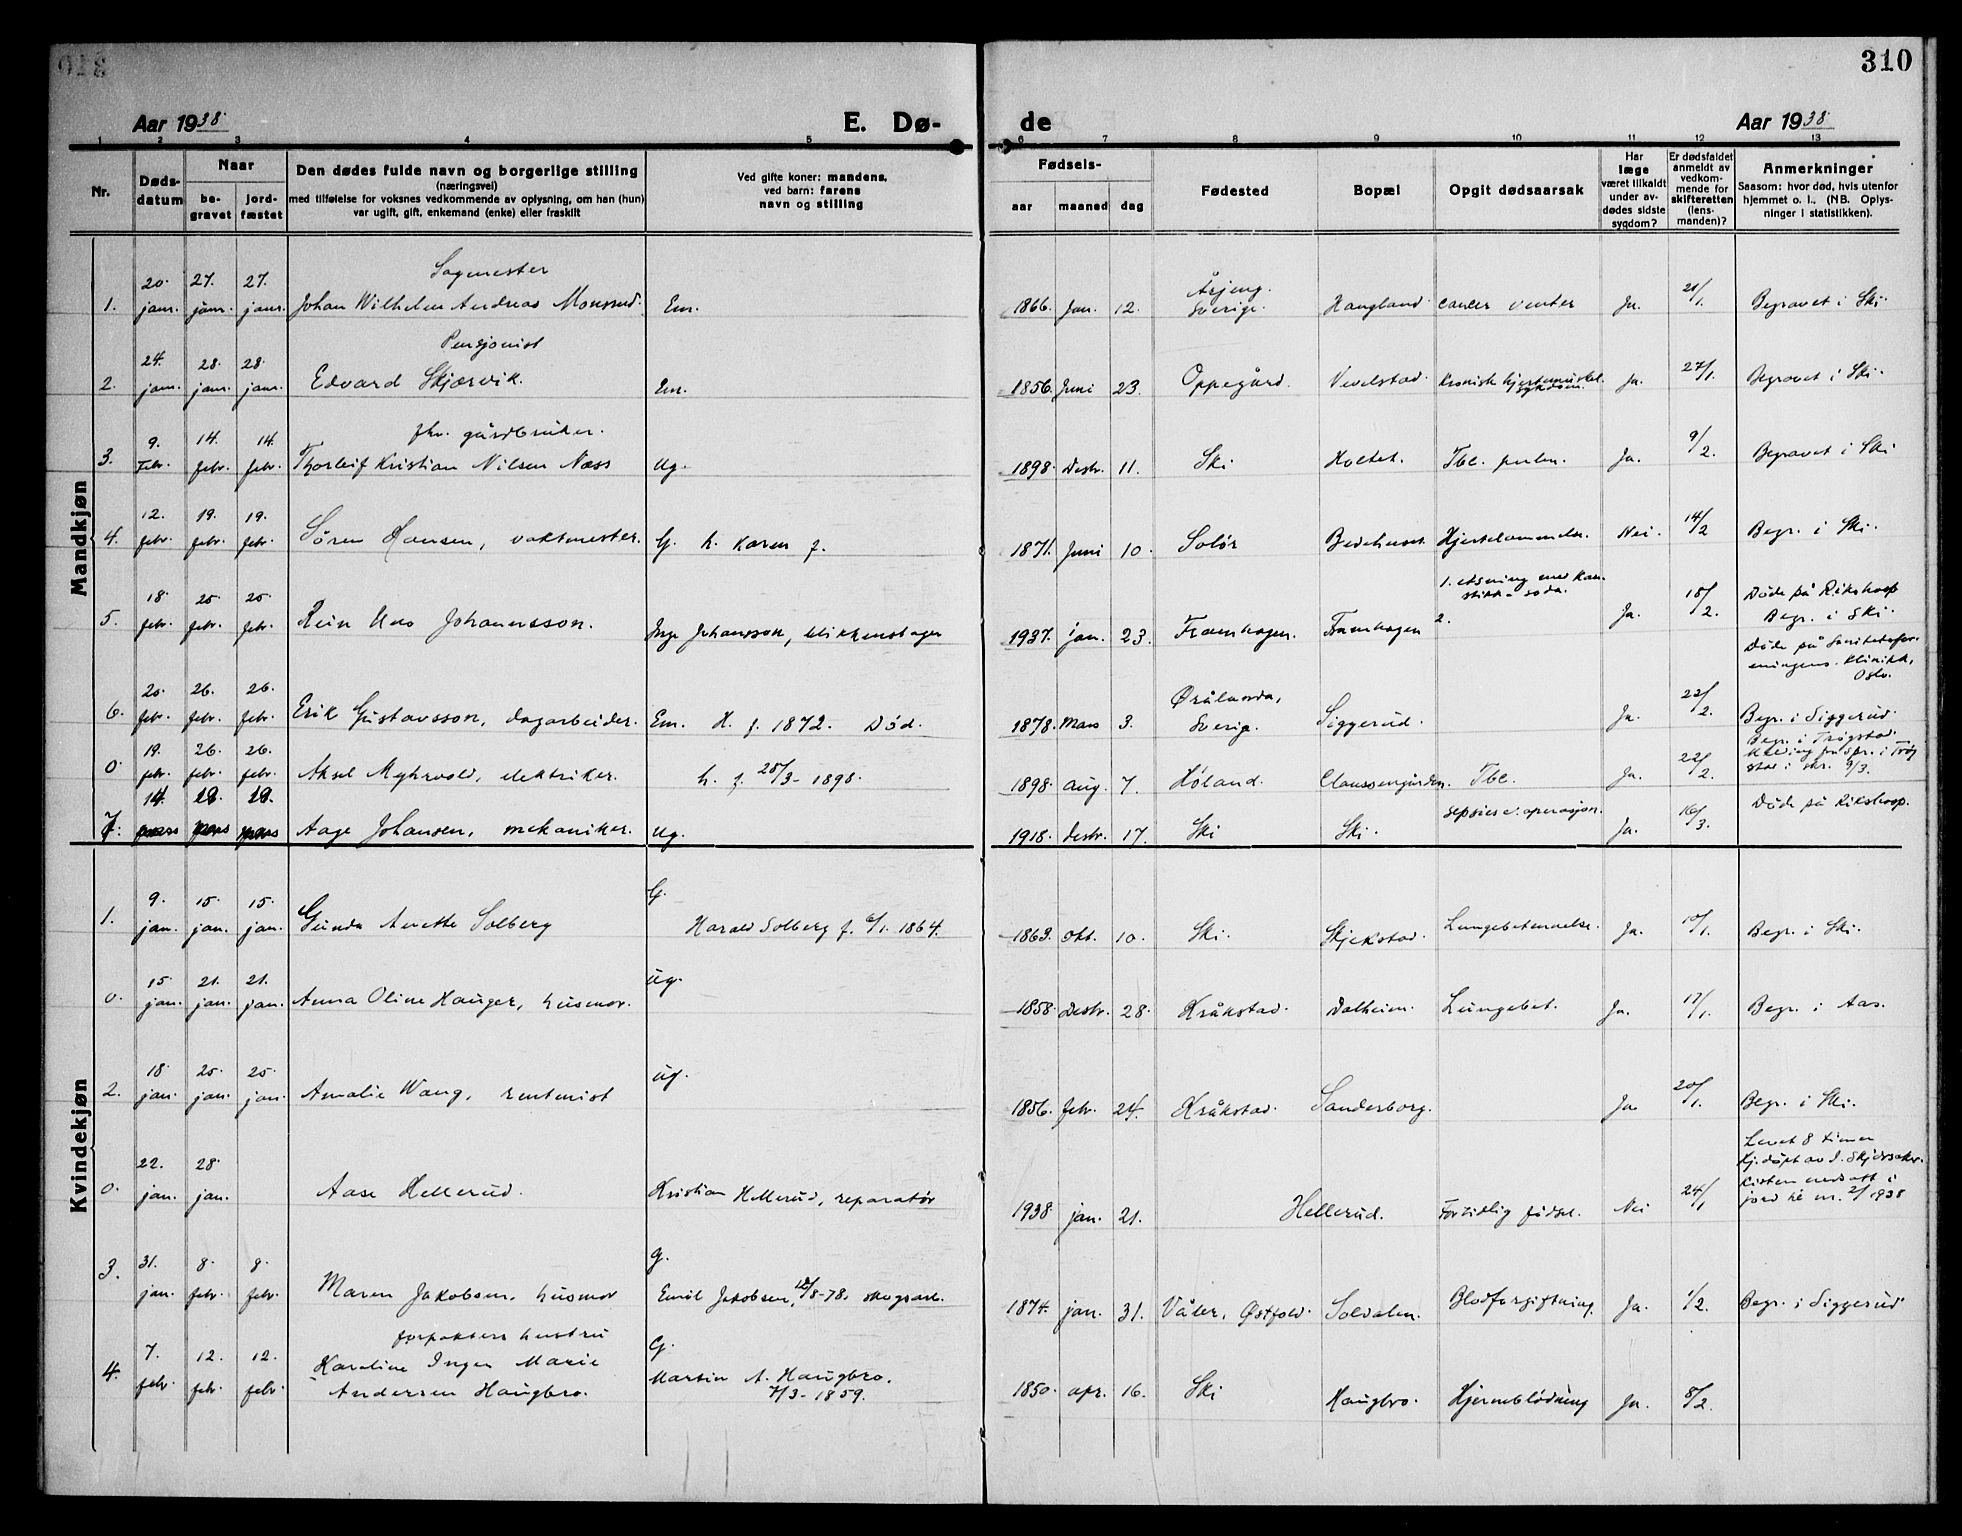 310
Aar 1938.
E. Dø-
de
Aar 1938.
1 2 3 4 5 6 7 8 9 10 11 12 13
Nr.
Døds-
datum
Naar
be-
gravet
jord-
fæstet
Den dødes fulde navn og borgerlige stilling
(næringsvei)
med tilføielse for voksnes vedkommende av oplysning, om han (hun)
var ugift, gift, enkemand (enke) eller fraskilt
Ved gifte koner: mandens,
ved barn: farens
navn og stilling
Fødsels-
aar
maaned
dag
Fødested
Bopæl
Opgit dødsaarsak
Har
læge
været tilkaldt
under av-
dødes sidste
sygdom?
Er dødsfaldet
anmeldt av
vedkom-
mende for
skifteretten
(lens-
manden)?
Anmerkninger
Saasom: hvor død, hvis utenfor
hjemmet o. l., (NB. Oplys-
ninger i statistikken).
Mandkjøn
Sagmester
1. 20. janr. 27. janr. 27. janr. Johan Wilhelm Andreas Monsrud. Em. 1866. Jan. 12. Årjeng. Sverige. Haugland. cancer venter Ja. 21/1. Begravet i Ski.
Pensjonist
2. 24. janr. 28. janr. 28. janr. Edvard Skjærvik. Em. 1856. Juni 23. Oppegård. Vevelstad. Kronisk hjertemuskel sykdom. Ja. 27/1. Begravet i Ski.
fhv. gårdbruker.
3. 9. Febr. 14. febr. 14. febr. Thorleif Kristian Nilsen Næss Ug. 1898. Desbr. 11. Ski Holtet. Tbc. pulm. Ja. 9/2. Begravet i Ski
4. 12. febr. 19. febr. 19. febr. Søren Hansen, vaktmester. G. h. Karen f. 1871. Juni 10. Solør Bedehuset. Hjertelammelse. Nei. 14/2 Begr. i Ski.
5. 18. febr. 25. febr. 25. febr. Rein Uno Johannsson. Inge Johansson, blikkenslager 1937. jan. 23. Framhagen. Framhagen 1. etsning med kau-
stikk-soda.
2. Ja. 18/2. Døde på Rikshosp
Begr. i Ski.
Døde på Sanitetsfor-
eningens Klinikk,
Oslo.
6. 20. febr. 26. febr. 26. febr. Erik Gustavsson, dagarbeider. Em. H. f. 1872. Død. 1878. Mars 3. Sverige. Siggerud. Ja. 22/2. Begr. i Siggerud.
0 19. febr. 26. febr. 26. febr. Aksel Myhrvold, elektriker. h. f. 25/3-1898. 1898. aug. 7. Høland. Claussengården. Tbc. Ja. 22/2. Begr. i Trøgstad.
7. 14. mars 19. mars 19. mars Aage Johansen, mekaniker. Ug. 1918. desbr. 17. Ski Ski. sepsis e. operasjon. Ja. 16/3. Døde på Rikshosp.
Kvindekjøn
1. 9. jan. 15. jan. 15. jan. Gunda Anette Solberg G.
Harald Solberg f. 6/1. 1864. 1863. Okt. 10. Ski. Skjekstad. Lungebetennelse. Ja. 10/1. Begr. i Ski.
0. 15. jan. 21. jan. 21. jan. Anna Oline Hauger, husmor. ug. 1858. Desbr. 28. Kråkstad. Dalheim. Lungebet. Ja. 17/1. Begr. i Aas.
2. 18. jan. 25. jan. 25. jan. Amalie Wang, rentenist ug. 1856. febr. 24. Kråkstad. Sanderborg. Ja 20/1. Begr. i Ski.
0. 22. jan. 28. jan. Aase Hellerud. Kristian Hellerud, reparatør 1938. jan. 21. Hellerud. Fortidlig fødsel. Nei 24/1 Levet 8 timer
Hj.døpt av J. Skjersaker.
Kisten nedsatt i
jord
3. 31. jan. 8. febr. 8. febr. Maren Jakobsen, husmor g.
Emil Jakobsen, 12/8-78, skogsarb. 1874. jan. 31. Våler, Østfold. Soldalen. Blodforgiftning. Ja. 1/2. Begr. i Siggerud
forpakters hustru
4. 7. febr. 12. febr. 12. febr. Karoline Inger Marie
Andersen Haugbro. G.
Martin A. Haugbro.
7/3-1859. 1850. apr. 16. Ski Haugbro. Hjerneblødning Ja. 8/2.